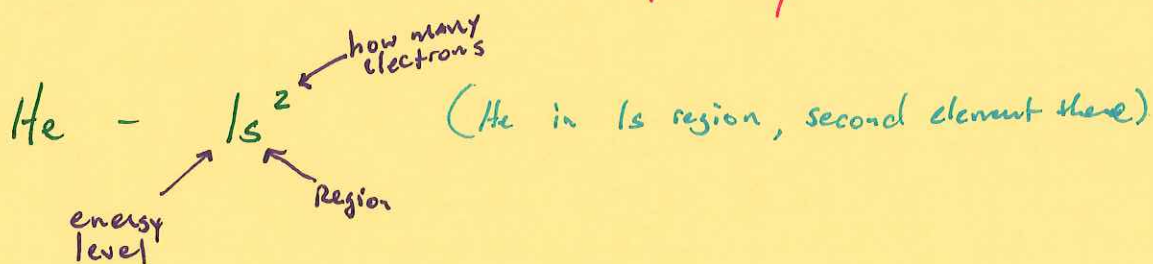 how many
electrons
He - 1s²
(He in 1s region, second element there)
energy
level
Region